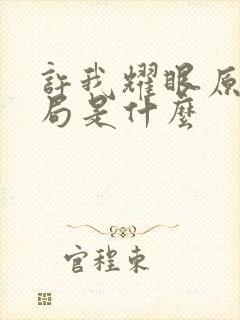 許我耀眼原
局是什麼
官程東